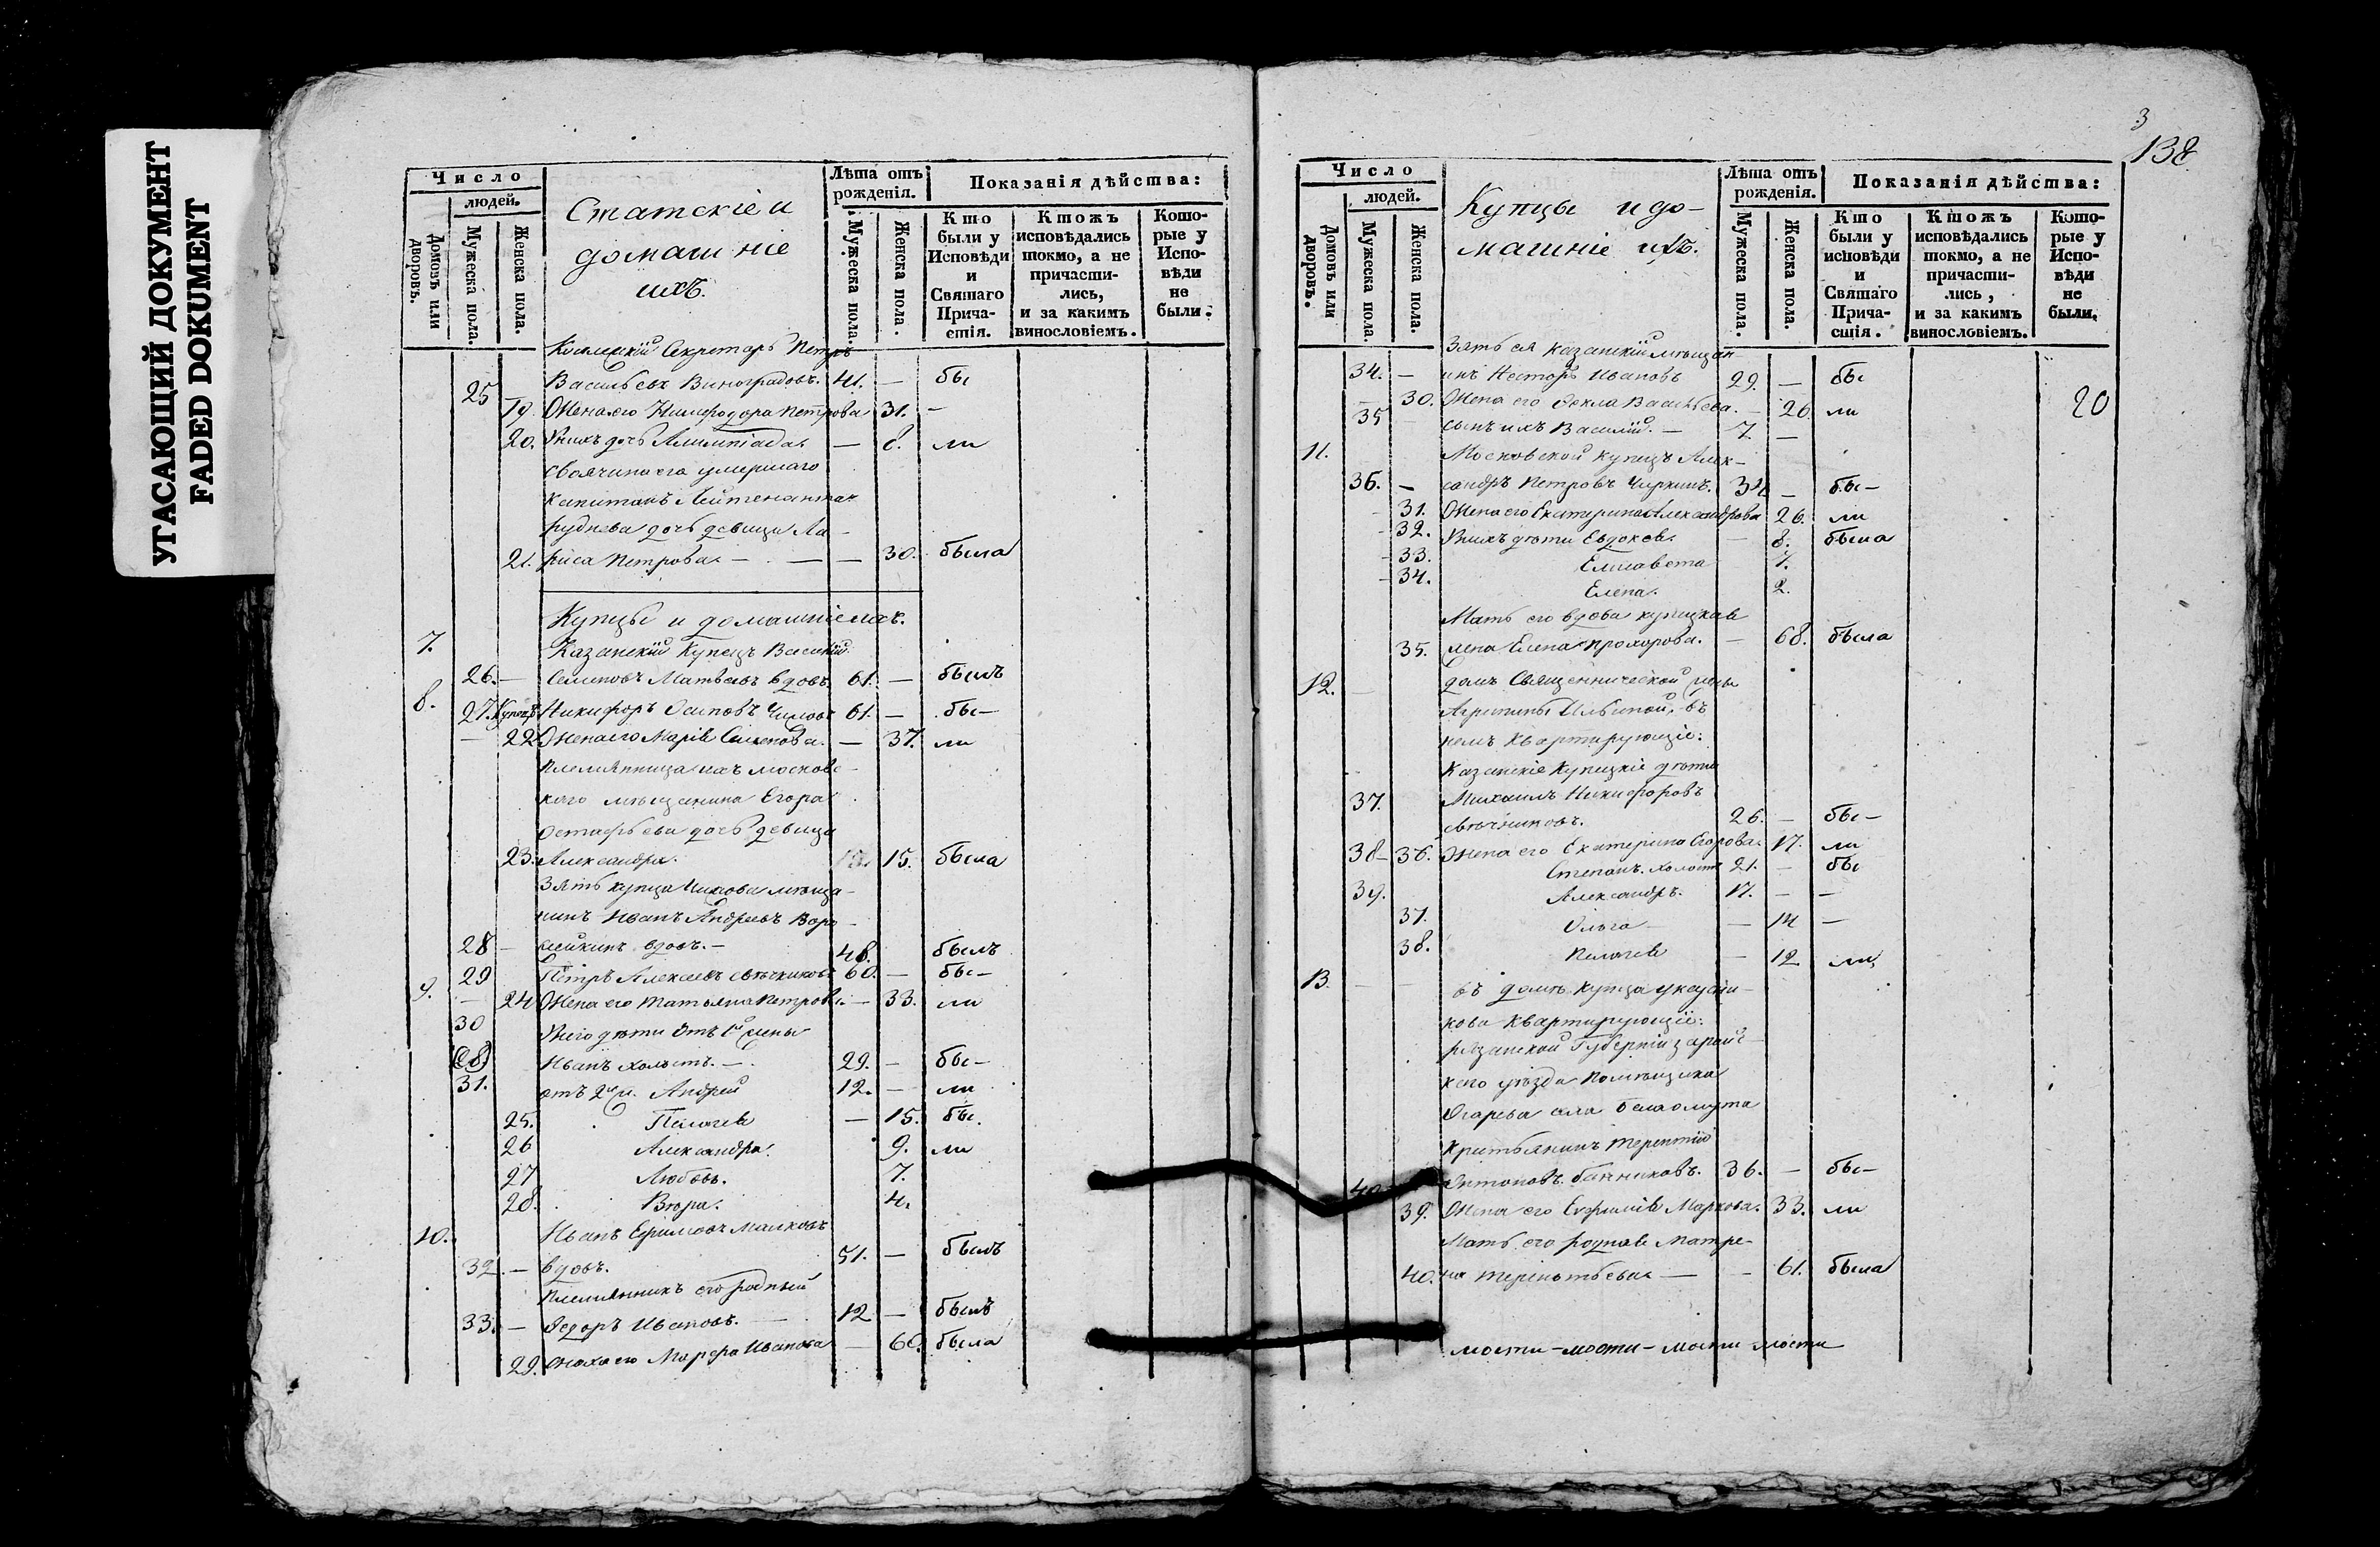 УГАСАЮЩИЙ ДОКУМЕНТ
FADED DOKUMENT
Число
людей.
Домовъ или дворовъ.
Мужеска пола.
Женска пола.
Статскіе и
домашніе
ихъ.
Лѣта отъ рожденія.
Мужеска пола.
Женска пола.
Показанія дѣйства:
Кто были у Исповѣди и Святаго Причастія.
Ктожъ исповѣдались токмо, а не причастились, и за какимъ винословіемъ.
Которые у Исповѣди не были.
Секретарь Петръ
25 Васильевъ Виноградовъ. 41. — бы
19. Жена его Петрова 31. —
20. У нихъ дочь Алимпіада — 8. ли
Своячина его умершаго
Капитанъ Лейтенанта
Руднева дочь девица Ла-
21. риса Петрова — — — 30. была
Купцы и домашніе ихъ.
7. Казанскій Купецъ Василій
26. — Семеновъ Матвеевъ вдовъ 61. — былъ
8. 27. Купецъ Никифоръ Осиповъ 61. — бы—
— 22 Жена его Марія Семенова. — 37. ли
Племянница ихъ москов-
каго мѣщанина Егора
дочь девица
23. Александра. 15. была
Зять купца мѣща-
нинъ Иванъ Андреевъ Воро-
28 — вдовъ. — 48. былъ
29 Петръ Алексеевъ свѣчниковъ 60. — бы—
9. — 24 Жена его Татьяна Петрова — 33. ли
30 У него дѣти отъ 1й жены
Иванъ холостъ. — 29. — бы—
31. отъ 2й ж. Андрей 12. — ли
25. Пелагея — 15. бы.
26 Александра. 9. ли
27 Любовь. 7.
28. Вѣра. 4.
10. Иванъ Ефимовъ
32. — вдовъ. 51. — былъ
Племянникъ его родный
33. — Федоръ Ивановъ. — 12 — былъ
29. Сноха его Марфа Иванова — была
3
138
Число
людей.
Домовъ или дворовъ.
Мужеска пола.
Женска пола.
Купцы и до-
машніе ихъ.
Лѣта отъ рожденія.
Мужеска пола.
Женска пола.
Показанія дѣйства:
Кто были у исповѣди и Святаго Причастія.
Ктожъ исповѣдались токмо, а не причастились, и за какимъ винословіемъ.
Которые у Исповѣди не были.
Зять ея казанскій мѣщан-
34. — инъ Несторъ Ивановъ 29. — бы
30. Жена его Фекла Васильева. — 26. ли 20
35 сынъ ихъ Василій. — 7. —
11. Московской купецъ Алек-
36. — сандръ Петровъ 34 — бы—
31. Жена его Екатерина Александрова 26. ли
32. У нихъ дѣти Евдокея. — 8. была
33. Елисавета 7.
34. Елена. 2.
Мать его вдова купецкая
35. жена Елена Прохорова. — 68. была
12. — домъ Священнической жены
Агрипины Ильиной, въ
немъ Квартирующіе:
Казанскіе Купецкіе дѣти
37. Михаилъ Никифоровъ
свѣчниковъ. 26. — бы—
38— 36. Жена его Екатерина Егорова. 17. ли
Степанъ. холостъ 21. — бы
39. Александръ. 17. — —
37. Ольга — — 14 —
38. Пелагея — 12. ли
13. — — въ домѣ Купца
кова Квартирующіе:
Рязанской Губерніи Зарай-
каго уѣзда помѣщика
Огарева села Белаомута
Крестьянинъ Терентій
40 Антоновъ 36. — бы—
39. Жена его Евфимія Маркова. 33. ли
Мать его родная Матре-
40. на Терентьева — — 61. была
мости-мости-мости мости